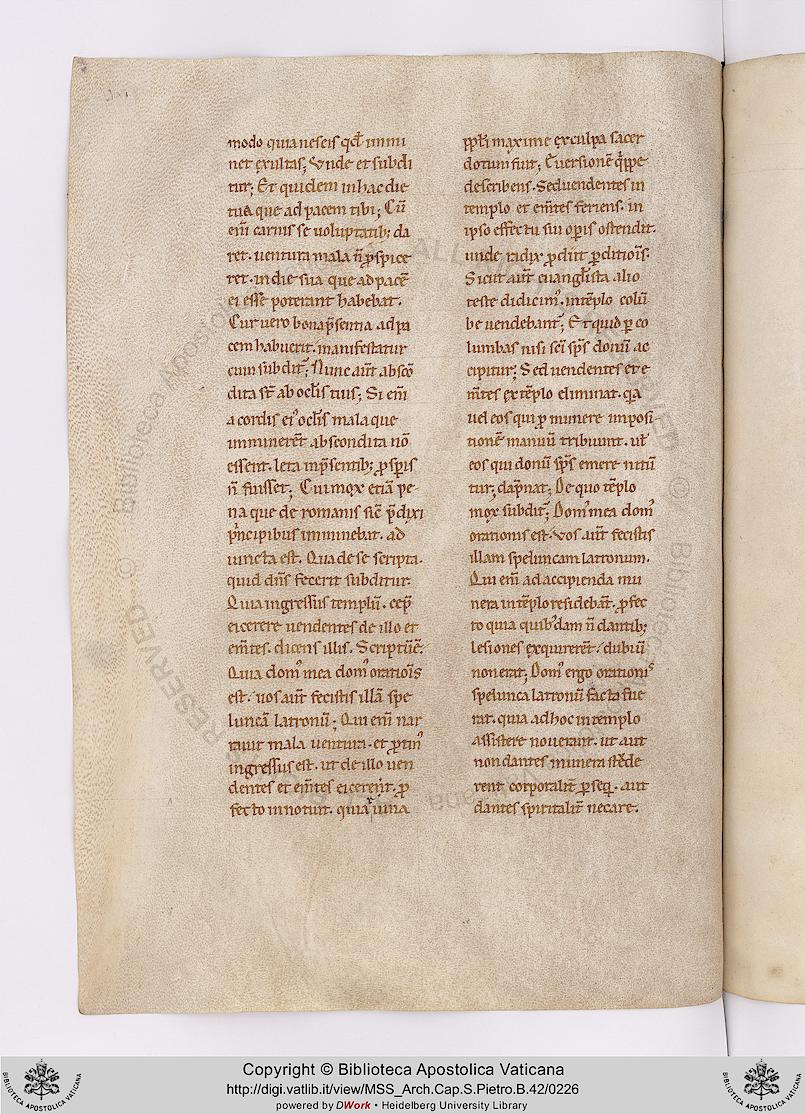 modo quia nescis qd̄ immi
net exultas; Unde et subdi
tur; Et quidem in hac die
tua que ad pacem tibi; Cū
eni̅ carnis se voluptatib; da
ret. ventura mala n̄ p̄spice
ret. in die sua que ad pacē
ei esse poterant habebat.
Cur vero bona p̄sentia ad pa
cem habuerit. manifestatur
cum subdit̄; Nunc aūt abscō
dita st̄ ab ocl̄is tuis; Si eni̅
a cordis ei᾽ ocl̄is mala que
imminerēt abscondita nō
essent. leta in p̄sentib; ꝓsp̄is
n̄ fuisset; Cui mox etiā pe
na que de romanis sic̄ p̄dixi
p̄ncipibus imminebat. ad
iuncta est. Qua de se scripta.
quid dn̄s fecerit subditur.
Quia ingressus templū. cep̄
eicerere vendentes de illo et
em̄tes. dicens illis. Scriptū ē.
Quia dom᾽ mea dom᾽ oratiōis
est. vos aūt fecistis illā spe
luncā latronū; Qui eni̅ nar
ravit mala ventura. et ꝓtin᾽
ingressus est. ut de illo ven
dentes et em̄tes eicerent. ꝓ
fecto innotuit. quia ruina
pp̄l̄i maxime ex culpa sacer
dotum fuit; Eversionē q̄ppe
describens. Sed vendentes in
templo et em̄tes feriens. in
ipso effectu sui op̄is ostendit.
unde radix ꝓdiit ꝑditiōis.
Sicut aūt evangl̄ista alio
teste didicim᾽. in tēplo colū
be vendebant̄; Et quid ꝑ co
lumbas nisi sc̄i sp̄s donū ac
cipitur; Sed vendentes et e
m̄tes ex tēplo eliminat. q̄a
vel eos qui ꝓ munere imposi
tionē manuū tribuunt. ul̄
eos qui donū sp̄s emere nitū
tur; dāpnat; De quo tēplo
mox subdit̄; Dom᾽ mea dom᾽
orationis est. vos aūt fecistis
illam speluncam latronum.
Qui eni̅ ad accipienda mu
nera in tēplo residebāt. ꝓfec
to quia quib᾽dam n̄ dantib;
lesiones exquirerēt. dubiū
non erat; Dom᾽ ergo orationis
spelunca latronū facta fue
rat. quia ad hoc in templo
assistere noverant. ut aut
non dantes munera stūde
rent corporalit̄ ꝑseq̄. aut
dantes spiritalit̄ necare.
Copyright © Biblioteca Apostolica Vaticana
http://digi.vatlib.it/view/MSS_Arch.Cap.S.Pietro.B.42/0226
powered by DWork • Heidelberg University Library